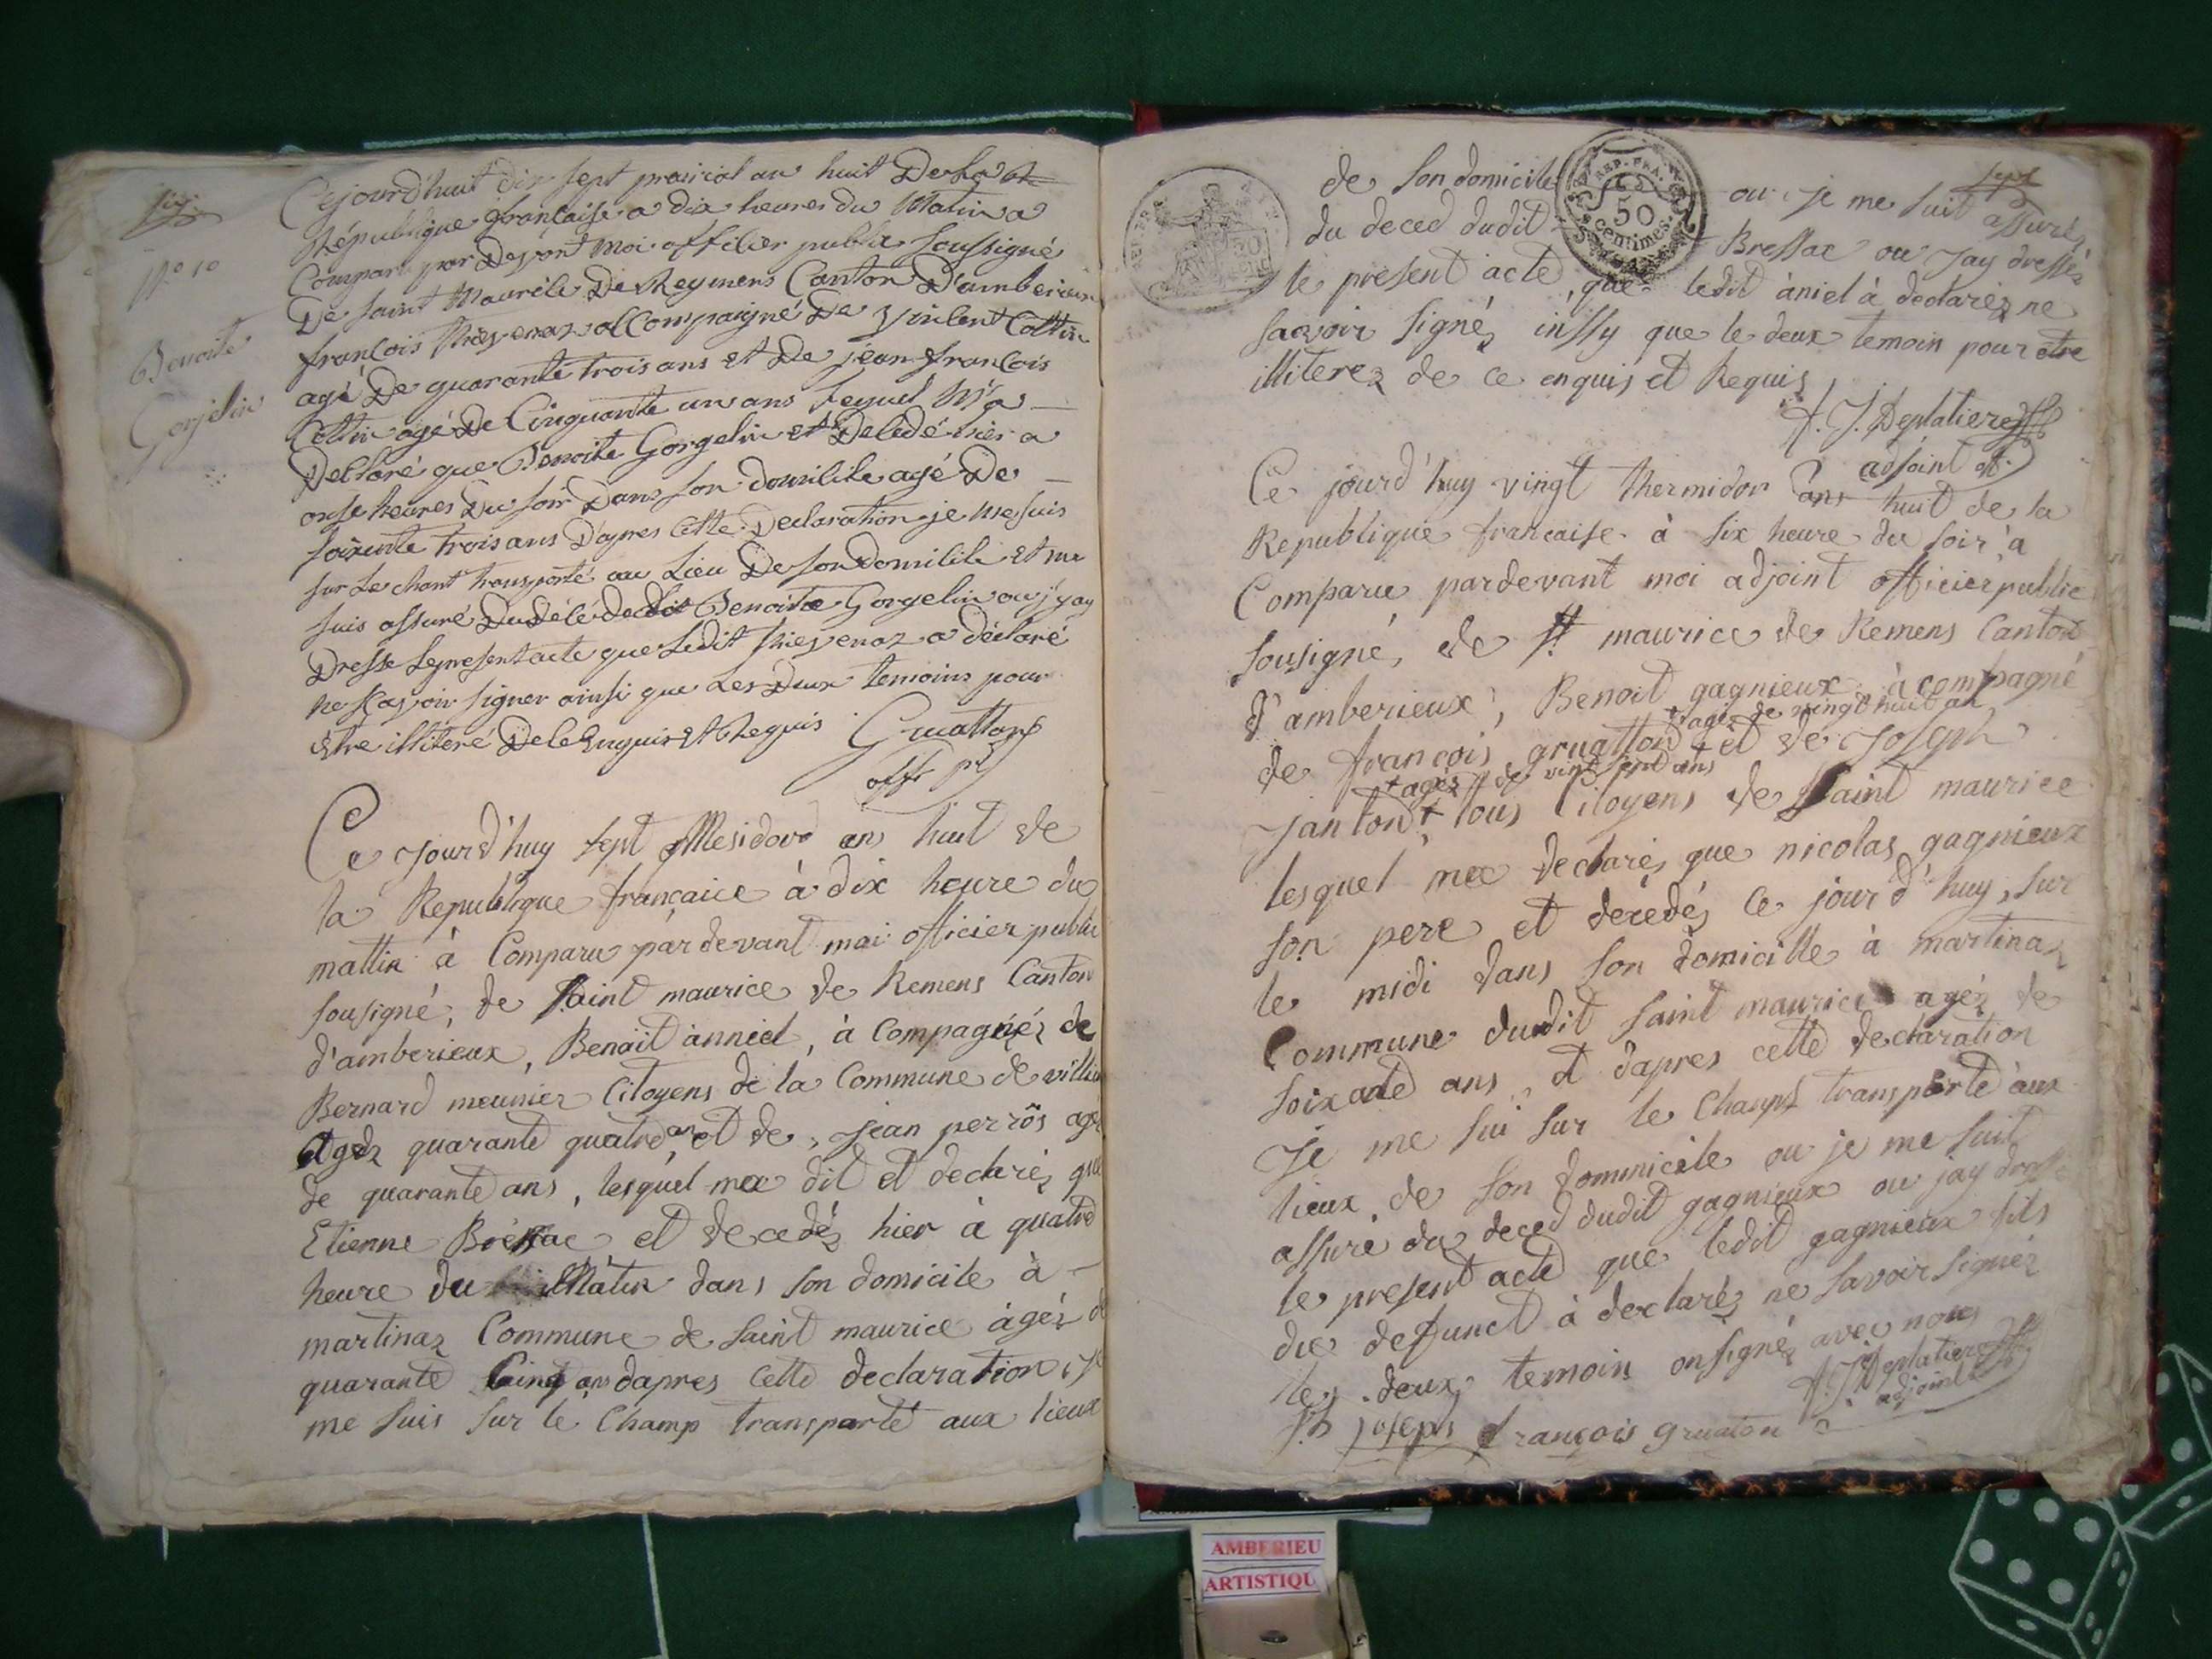 six
N° 10
Benoite
Gorjelin
Cejourd'huit dix sept prairial an huit De La
République française a dix heures du Matin a
Comparu par Devont Moi officier public soussigné
De saint Maurice De Reymens Canton D'amberieux
françois accompaigné De Vincent Cottin
agé De quarante trois ans et De jean françois
Cottin agé De Cinquante un ans Lequel M'a
Declaré que Benoite Gorgelin et Decedé hier a
onse heures Du soir Dans son domicile agé De
soixente trois ans D'apres Cette Declaration je me suis
sur Le chant transporté au Lieu De son Domicile et me
suis assuré Du Décé dedit Benoite Gorgelin ou j'y ay
Dresse Le present acte que Ledit a déclaré
ne sçavoir signer ainsi que Les Deux temoins pour
être illiteré De Ce Enquis et Requis Gruatton
offr pc
Ce jourd'huy sept Mesidord an huit de
la Republique françaice à dix heure du
mattin à Comparu pardevant moi officier public
sousigné, de saint maurice de Remens Canton
d'amberieux, Benoit anniel, à Compagnéz de
Bernard meunier Citoyens de la Commune de
Agéz quarante quatre an, et de, jean perrôs agé
de quarante ans, lesquel ma dit et declaréz que
Etienne Bressac et decedéz hier à quatre
heure du Matin dans son domicile à
martinaz Commune de saint maurice àgéz de
quarante Cinq an dapres Cette declaration je
me suis sur le Champ transporté aux lieux
sept
REP. FRA.
50
centimes.
de son domicile ou je me suit assuréz
du deced dudit Bressac ou Jay dresséz
le present acte, que ledit àniel à declaréz ne
savoir signéz inssy que le deux temoin pour être
illiterez de ce enquis et Requis
A. J. Deplatiere
adjoint
Ce jourd'huy vingt thermidor ans huit de la
Republique francaise à six heure du soir à
Comparu pardevant moi adjoint officier public
sousigné, de st maurice de Remens Canton
d'amberieux, Benoit gagnieux à compagné
de françois gruatton + et de Joseph
+ agéz de vingt huit an
Janton +, tous Citoyens de saint maurice
+ agéz de vint sept ans
lesquel ma declaréz que nicolas gagnieux
son pere et decedéz Ce jourd'huy, sur
le midi dans son domicille à martinaz
Commune dudit saint maurice agéz de
soixante ans, et dapres cette declaration
Je me sui sur le Champs transporté aux
lieux de son domnicile ou je me suit
assuré du deced dudit gagnieux ou jay dressé
le present acte que ledit gagnieux fils
du defunct à declaréz ne savoir signéz
les deux temoin onsignéz avec nous
A. J. Deplatiere
adjoint
joseph françois gruaton
AMBERIEU
ARTISTIQU